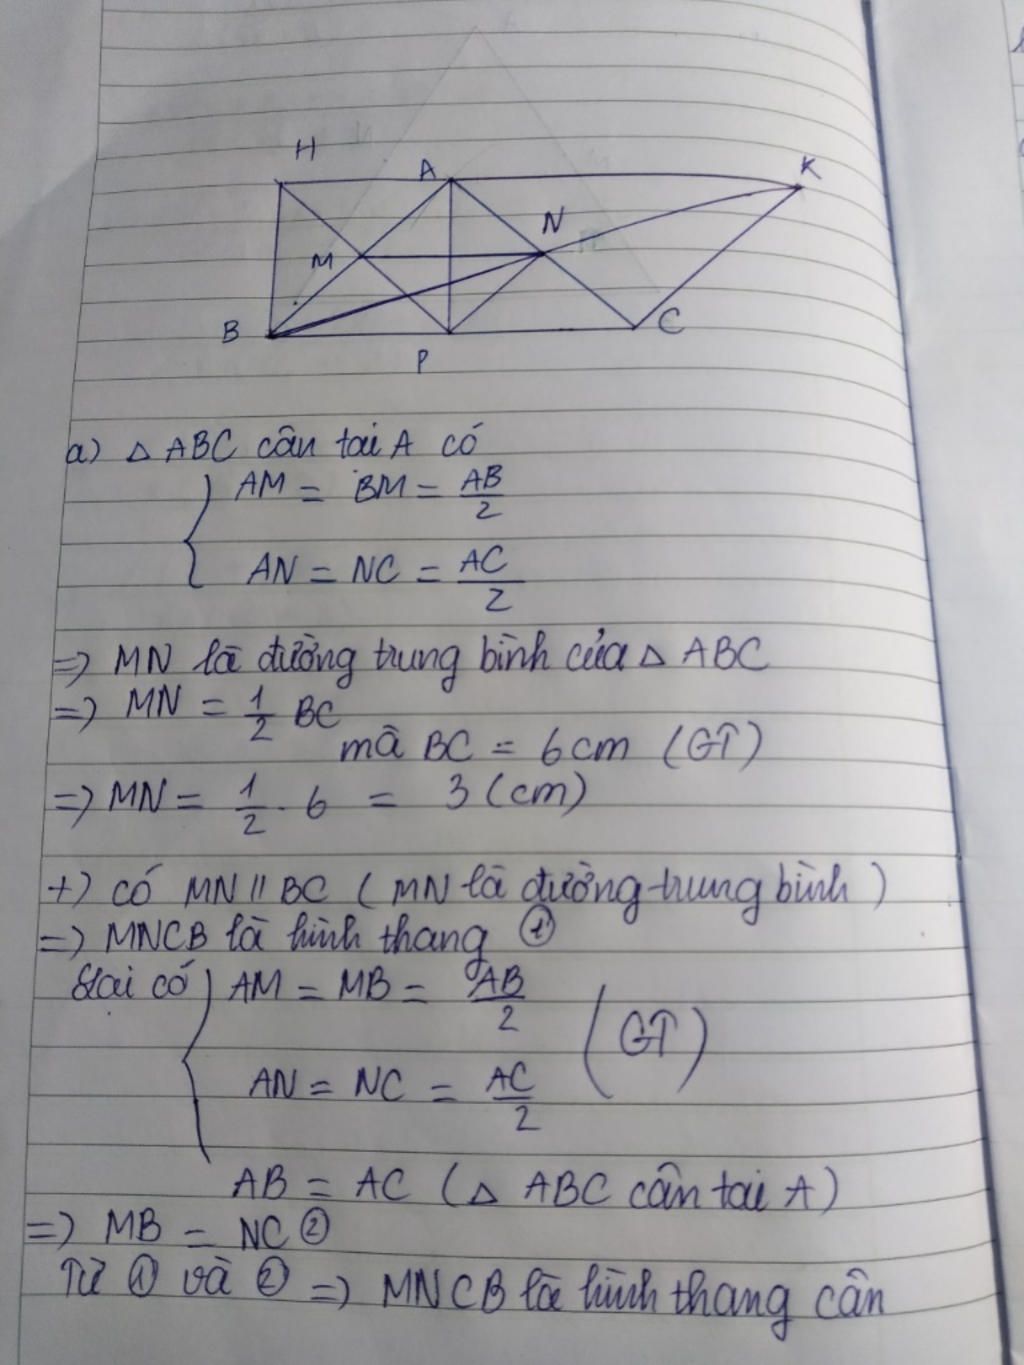 H A K
M N
B P C
a) △ ABC cân tại A có
AM = BM = AB/2
AN = NC = AC/2
=> MN là đường trung bình của △ ABC
=> MN = 1/2 BC
mà BC = 6cm (GT)
=> MN = 1/2 . 6 = 3 (cm)
+) có MN // BC ( MN là đường trung bình )
=> MNCB là hình thang ①
Lại có AM = MB = AB/2
(GT)
AN = NC = AC/2
AB = AC (△ ABC cân tại A)
=> MB = NC ②
Từ ① và ② => MNCB là hình thang cân